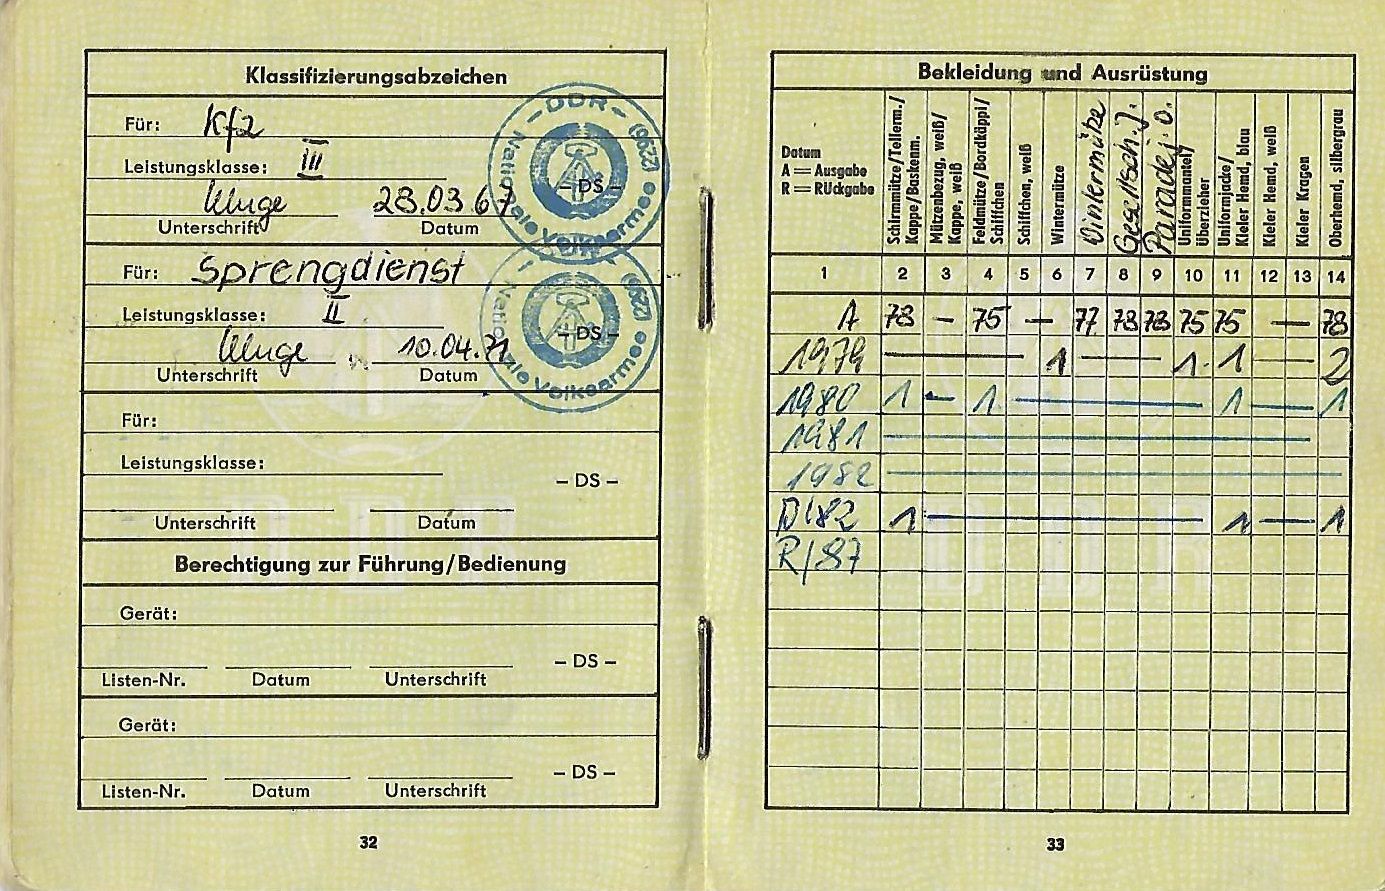 Klassifizierungsabzeichen
Für: Kfz
Leistungsklasse: III
Kluge 28.03.67
Unterschrift Datum
– DDR –
Nationale Volksarmee
– DS –
Für: Sprengdienst
Leistungsklasse: II
Kluge 10.04.71
Unterschrift Datum
Nationale Volksarmee
– DS –
Für:
Leistungsklasse:
– DS –
Unterschrift Datum
Berechtigung zur Führung/Bedienung
Gerät:
– DS –
Listen-Nr. Datum Unterschrift
Gerät:
– DS –
Listen-Nr. Datum Unterschrift
32
Bekleidung und Ausrüstung
Datum
A = Ausgabe
R = RUckgabe
Schirmmütze/Tellerm./
Kappe/Baskenm.
Mützenbezug, weiß/
Kappe, weiß
Feldmütze/Bordkäppi/
Schiffchen
Schiffchen, weiß
Wintermütze
Wintermütze
Gesellsch. J.
Paradej. o.
Uniformmantel/
Überzieher
Uniformjacke/
Kieler Hemd, blau
Kieler Hemd, weiß
Kieler Kragen
Oberhemd, silbergrau
1 2 3 4 5 6 7 8 9 10 11 12 13 14
A 78 – 75 – 77 78 78 75 75 — 78
1979 — 1 — 1 1 — 2
1980 1 – 1 — 1 — 1
1981 —
1982 —
1 — 1 — 1
R/87
33